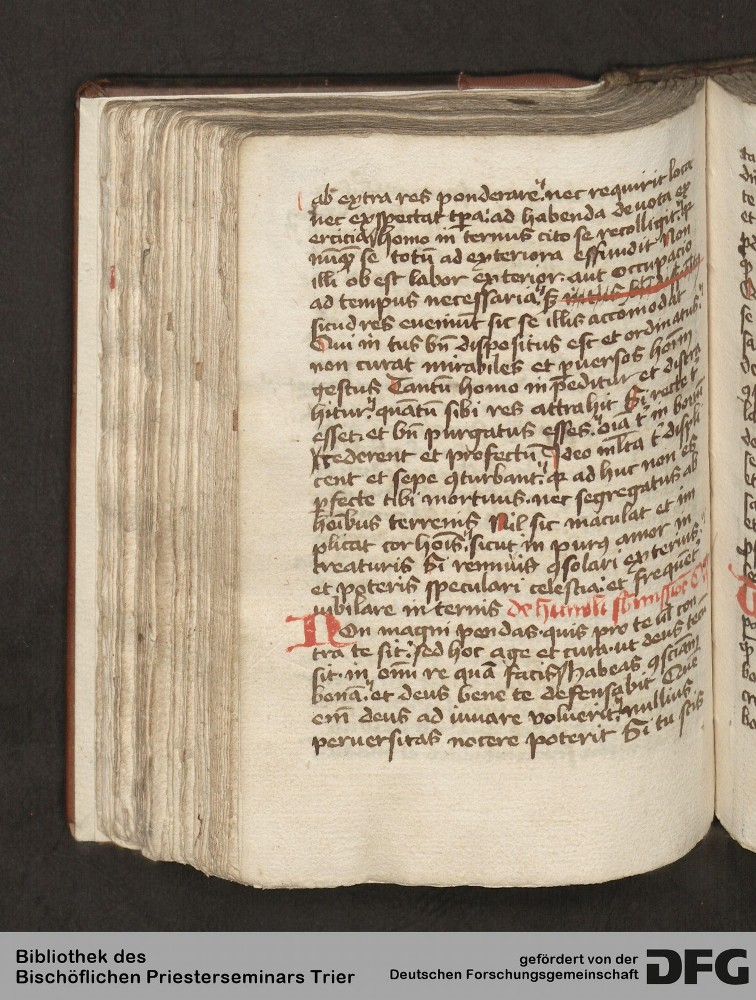 ab extra res ponderare. nec requirit loca
nec expectat tpa. ad habenda deuota ex
ercicia homo in ternus cito se recolligit. q
nūq se totū ad exteriora effundit Non
illi ob est labor exterior. aut occupacio
ad tempus necessaria. S
sicud res eueniūt sic se illis accomodat
Qui in tus bn̄ dispositus est et ordinatus.
non curat mirabiles et puersos hom̄
gestus Tantū homo in peditur et distra
hitur. quātū sibi res attrahit Si recte t
esset. et bn̄ purgatus esses. oīa t in bonū
cederent et profectū Ideo ml̄ta t displi
cent et sepe 9turbant. q ad huc non es
pfecte tibi mortuus. nec segregatus ab
hoībus terrenis Nil sic maculat et im
plicat cor hoīs. sicut in pur9 amor in
creaturis Si rennuis 9solari exterius.
et poteris speculari celestia. et frequēt
iubilare in ternis de humili sbmissioē
Non magni pendas. quis pro te ul con
tra te sit. sed hoc age et cura. ut deus tecū
sit. in om̄i re quā facis Habeas 9sciam
bonā. et deus bene te defensabit Que
em̄ deus ad iuuare voluerit. nullius
peruersitas nocere poterit Si tu scis
Bibliothek des
Bischöflichen Priesterseminars Trier
gefördert von der
Deutschen Forschungsgemeinschaft
DFG